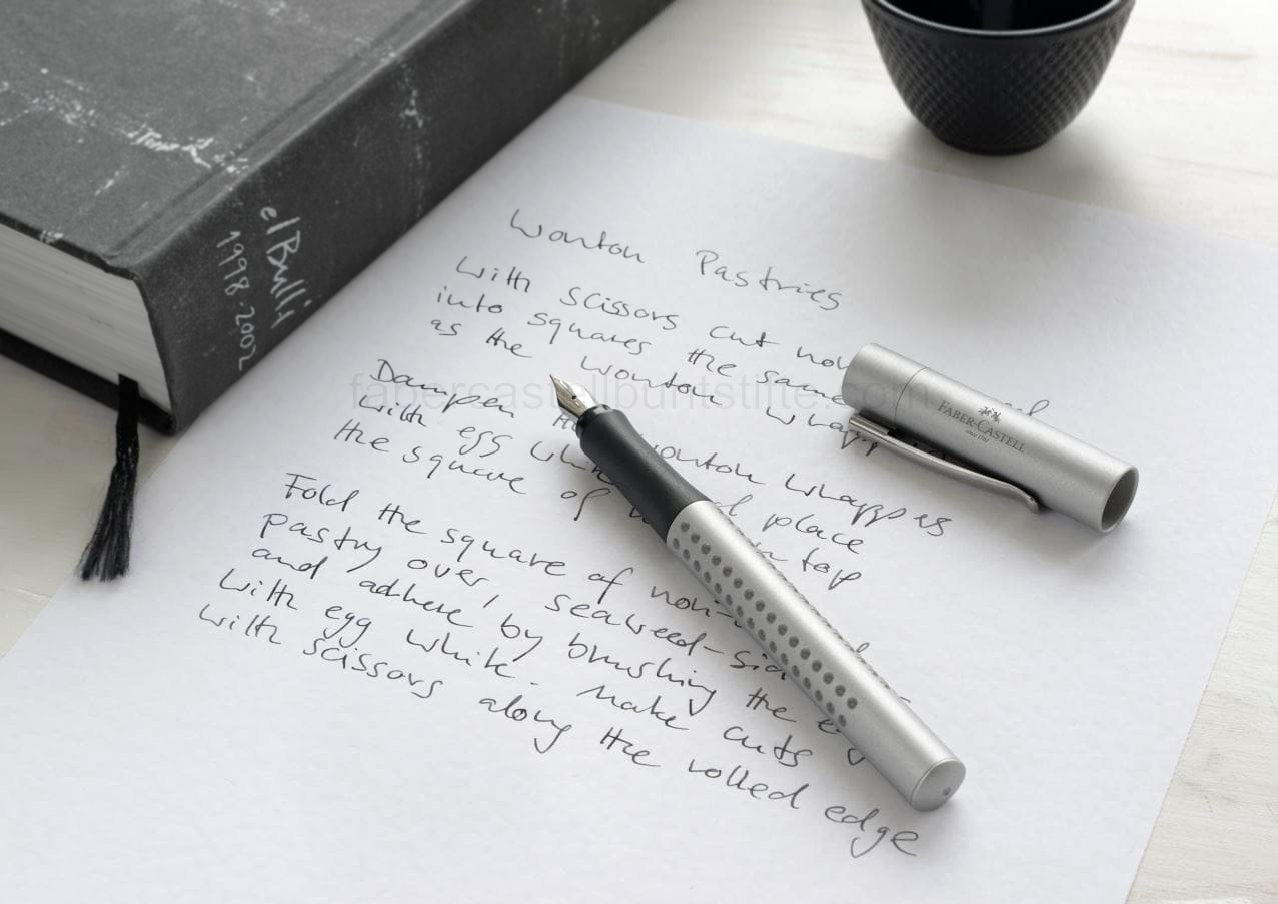 elBulli
1998-2002
Wonton Pastries
With scissors cut
into squares the same
as the wonton
Dampen the wonton wrappers
with egg white place
the square of on top
Fold the square of
pastry over, seaweed-
and adhere by brushing the
with egg white. Make cuts
with scissors along the rolled edge
FABER-CASTELL
since 1761
fabercastellbuntstifte.com